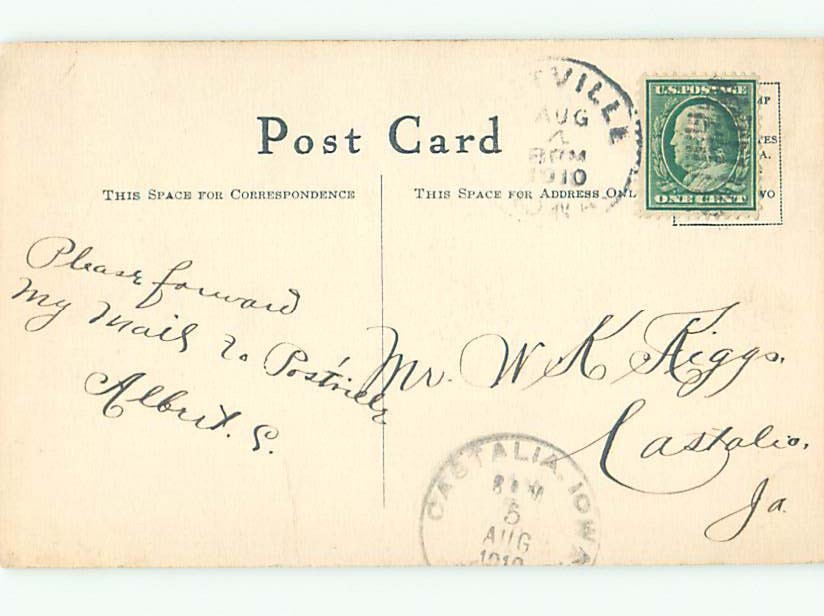 Post Card
THIS SPACE FOR CORRESPONDENCE
THIS SPACE FOR ADDRESS ONL
TVILLE
AUG
4
8PM
1910
U.S. POSTAGE
ONE CENT
MP
ES
A.
WO
Please forward
my mail to Postville
Albert. S.
Mr. W K Riggs.
Castalia,
Ia.
CASTALIA, IOWA
8 AM
5
AUG
1910